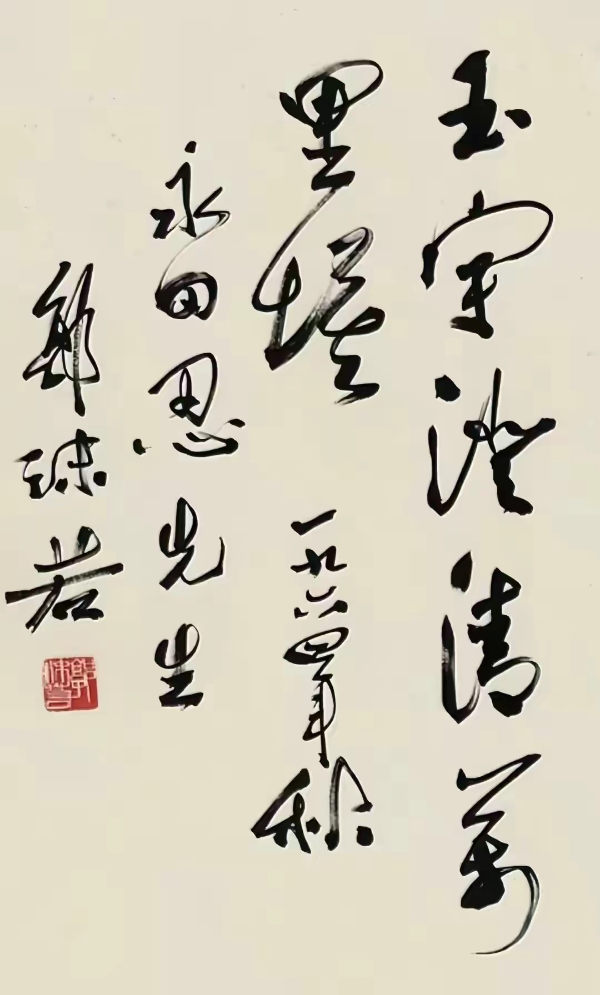 玉宇澄清萬
里埃
一九六四年秋
永田思先生
郭沫若
郭沫若